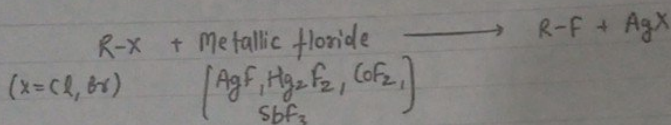 R-X + Metallic floride ⟶ R-F + AgX
(X=Cl, Br) [AgF, Hg₂F₂, CoF₂, SbF₃]